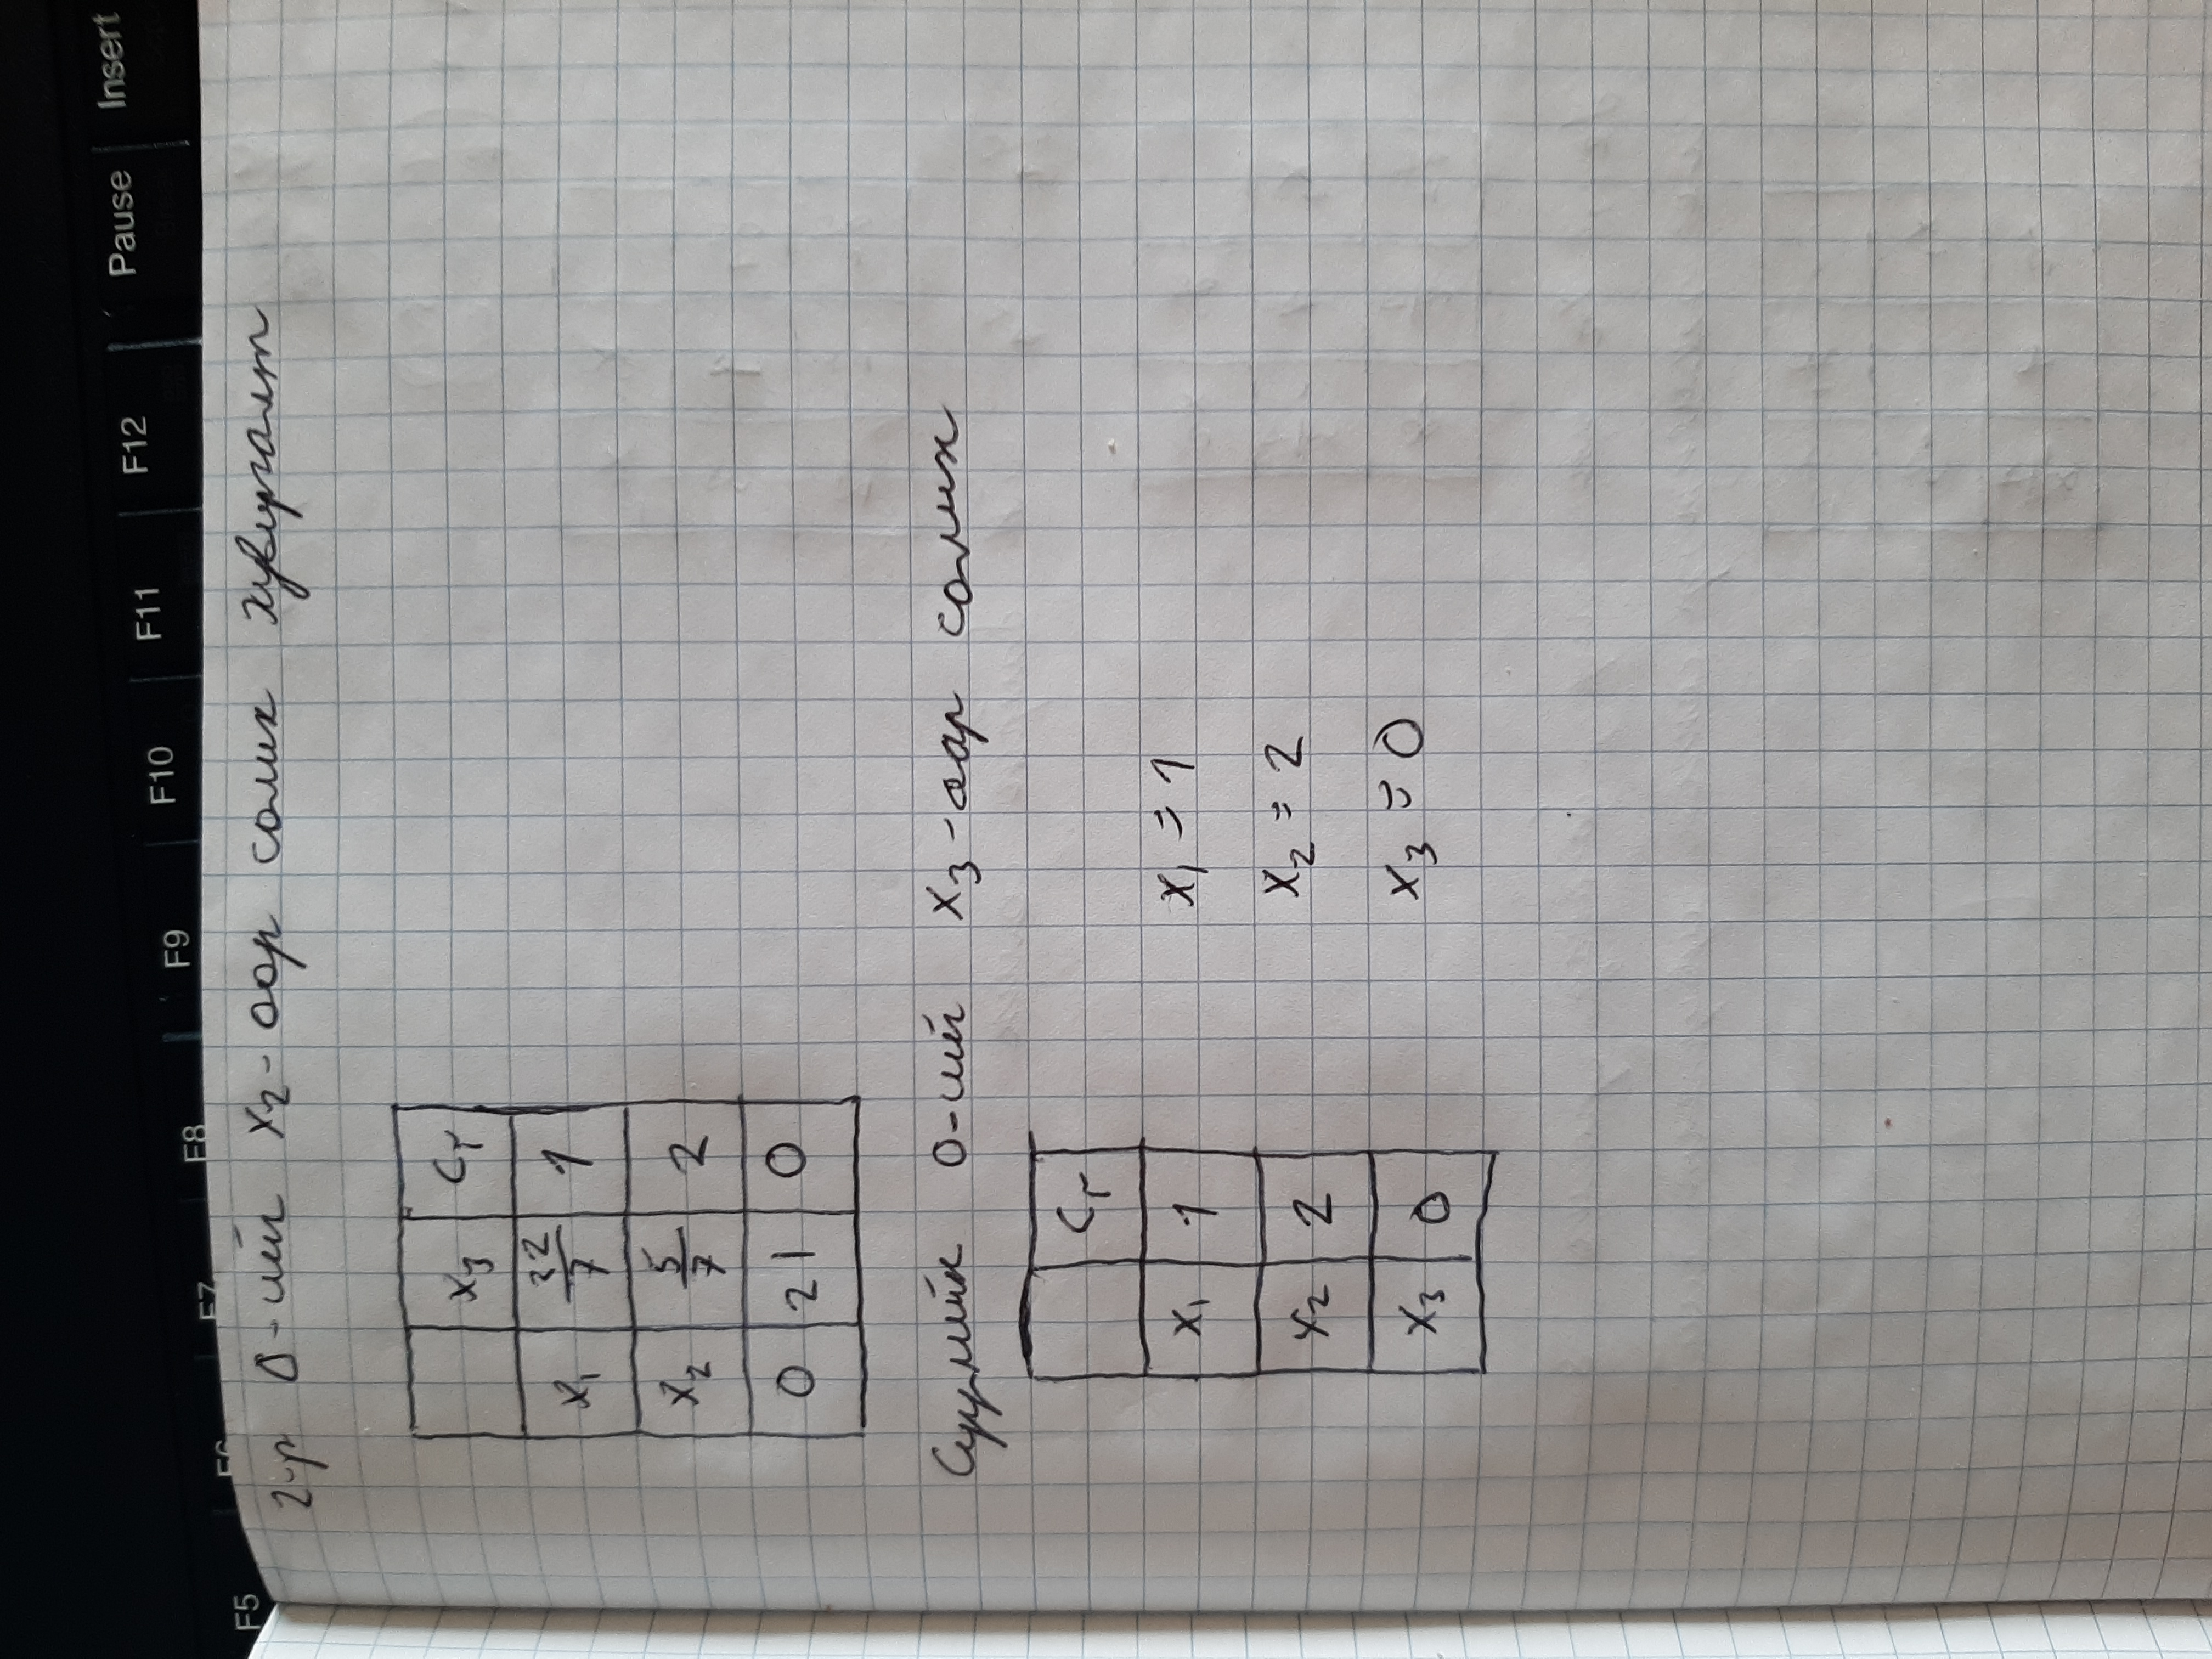 F5 F6 F7 F8 F9 F10 F11 F12 Pause Insert
2-р 0-ийг x₂-оор солих хувиргалт
x₃ Cг
x₁ 22/7 1
x₂ 5/7 2
0 21 0
Сүүлийн 0-ийг x₃-аар солих
Cг
x₁ 1 x₁ = 1
x₂ 2 x₂ = 2
x₃ 0 x₃ = 0